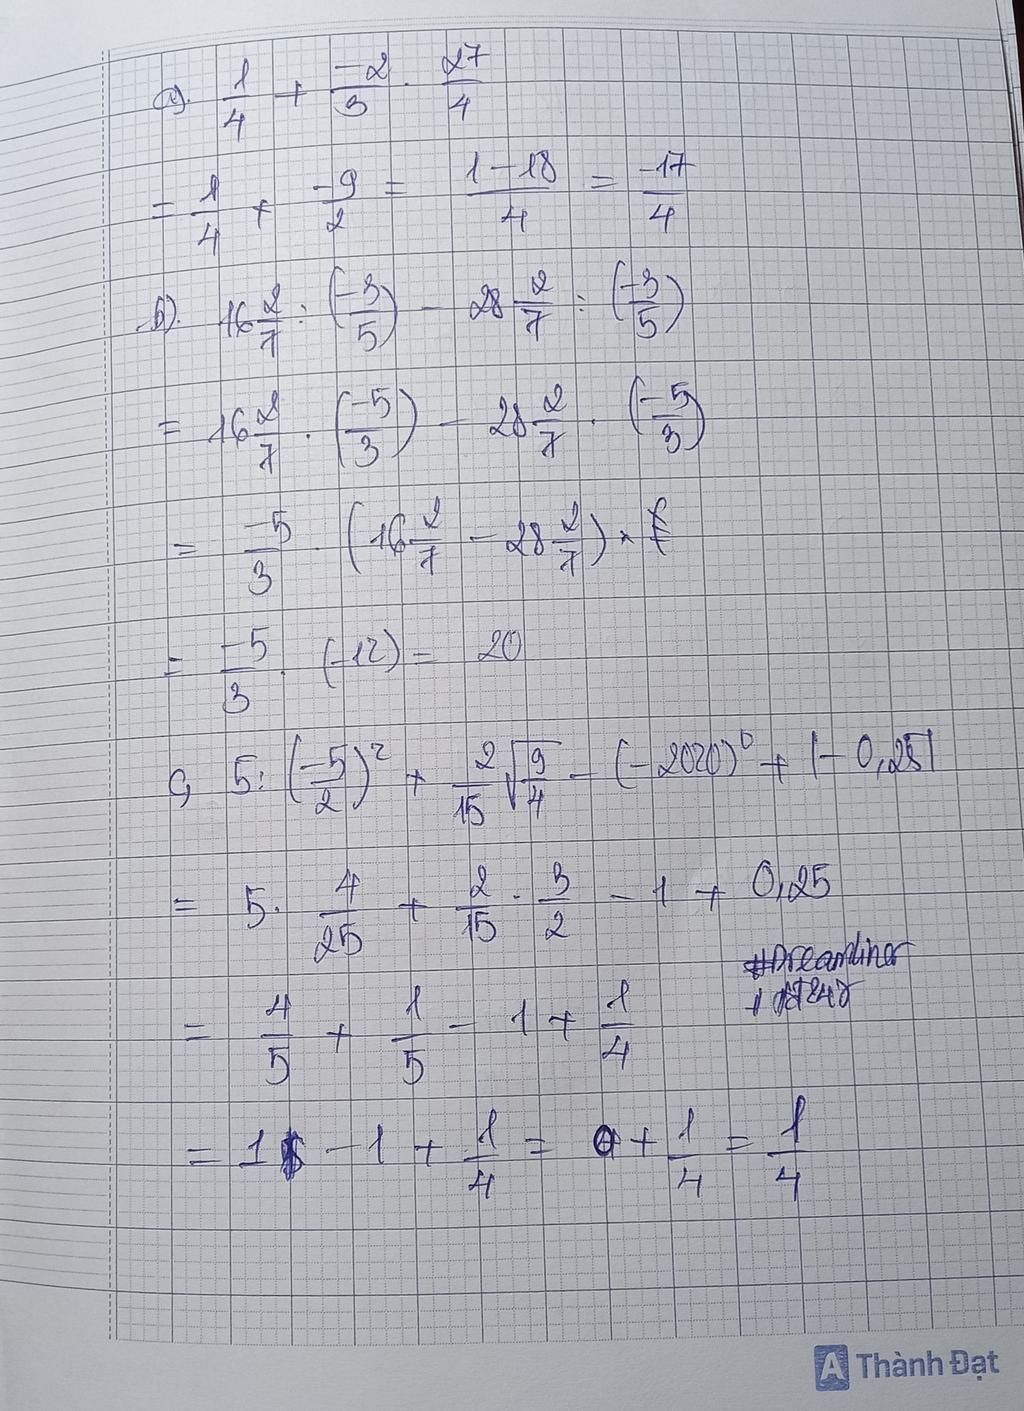 a). 1/4 + -2/3 . 27/4
= 1/4 + -9/2 = 1-18/4 = -17/4
b). 16 2/7 : (-3/5) - 28 2/7 : (-3/5)
= 16 2/7 . (-5/3) - 28 2/7 . (-5/3)
= -5/3 . (16 2/7 - 28 2/7)
= -5/3 . (-12) = 20
c, 5 : (-5/2)² + 2/15 √9/4 - (-2020)⁰ + |-0,25|
= 5 . 4/25 + 2/15 . 3/2 - 1 + 0,25
#Dreamliner
= 4/5 + 1/5 - 1 + 1/4
= 1 - 1 + 1/4 = 0 + 1/4 = 1/4
A Thành Đạt